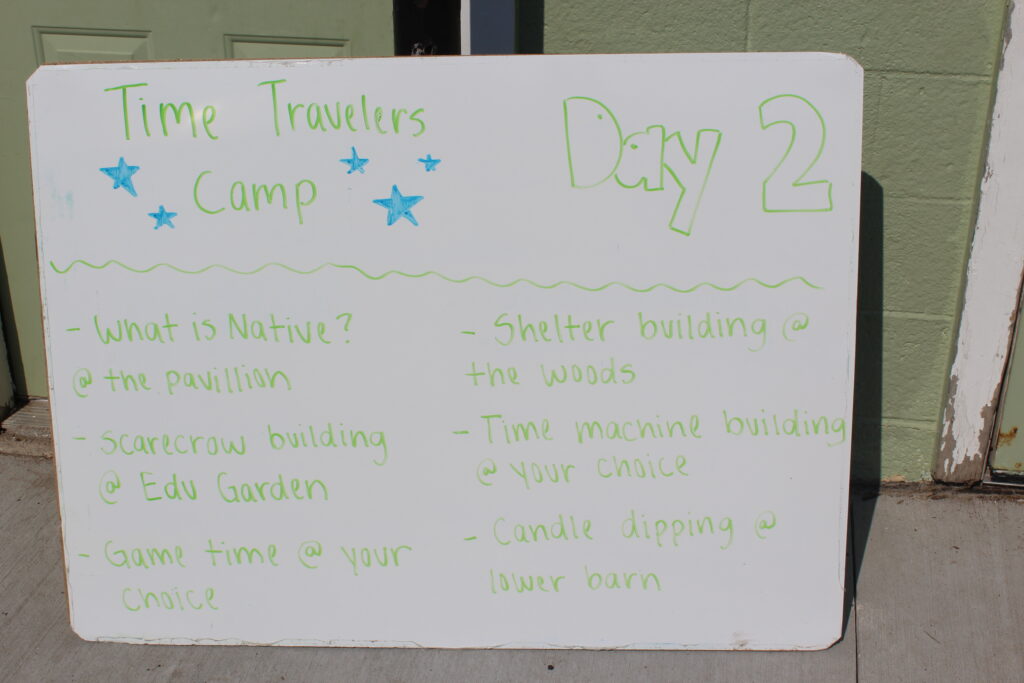 Time Travelers
Camp
Day 2
- What is Native?
@ the pavillion
- scarecrow building
@ Edu Garden
- Game time @ your
choice
- Shelter building @
the woods
- Time machine building
@ your choice
- Candle dipping @
lower barn